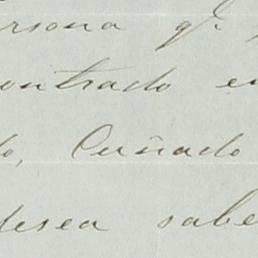 ersona q.
ontrado en
do, Cuñado
desea sabe